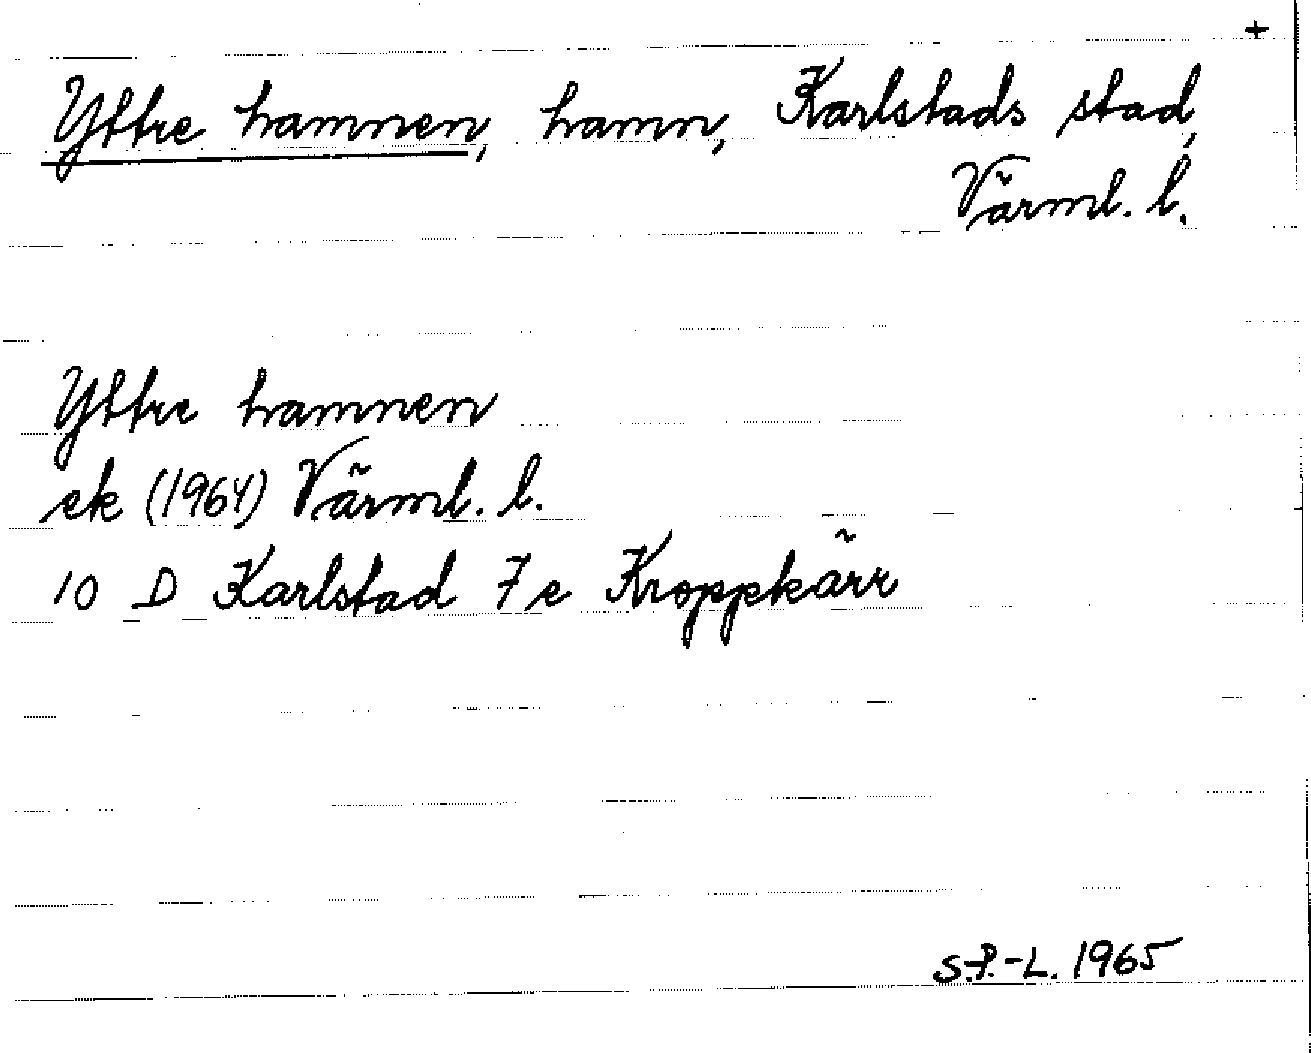 +
Yttre hamnen, hamn, Karlstads stad,
Värml. l.
Yttre hamnen
ek (1964) Värml. l.
10 D Karlstad 7e Kroppkärr
S.P.-L. 1965